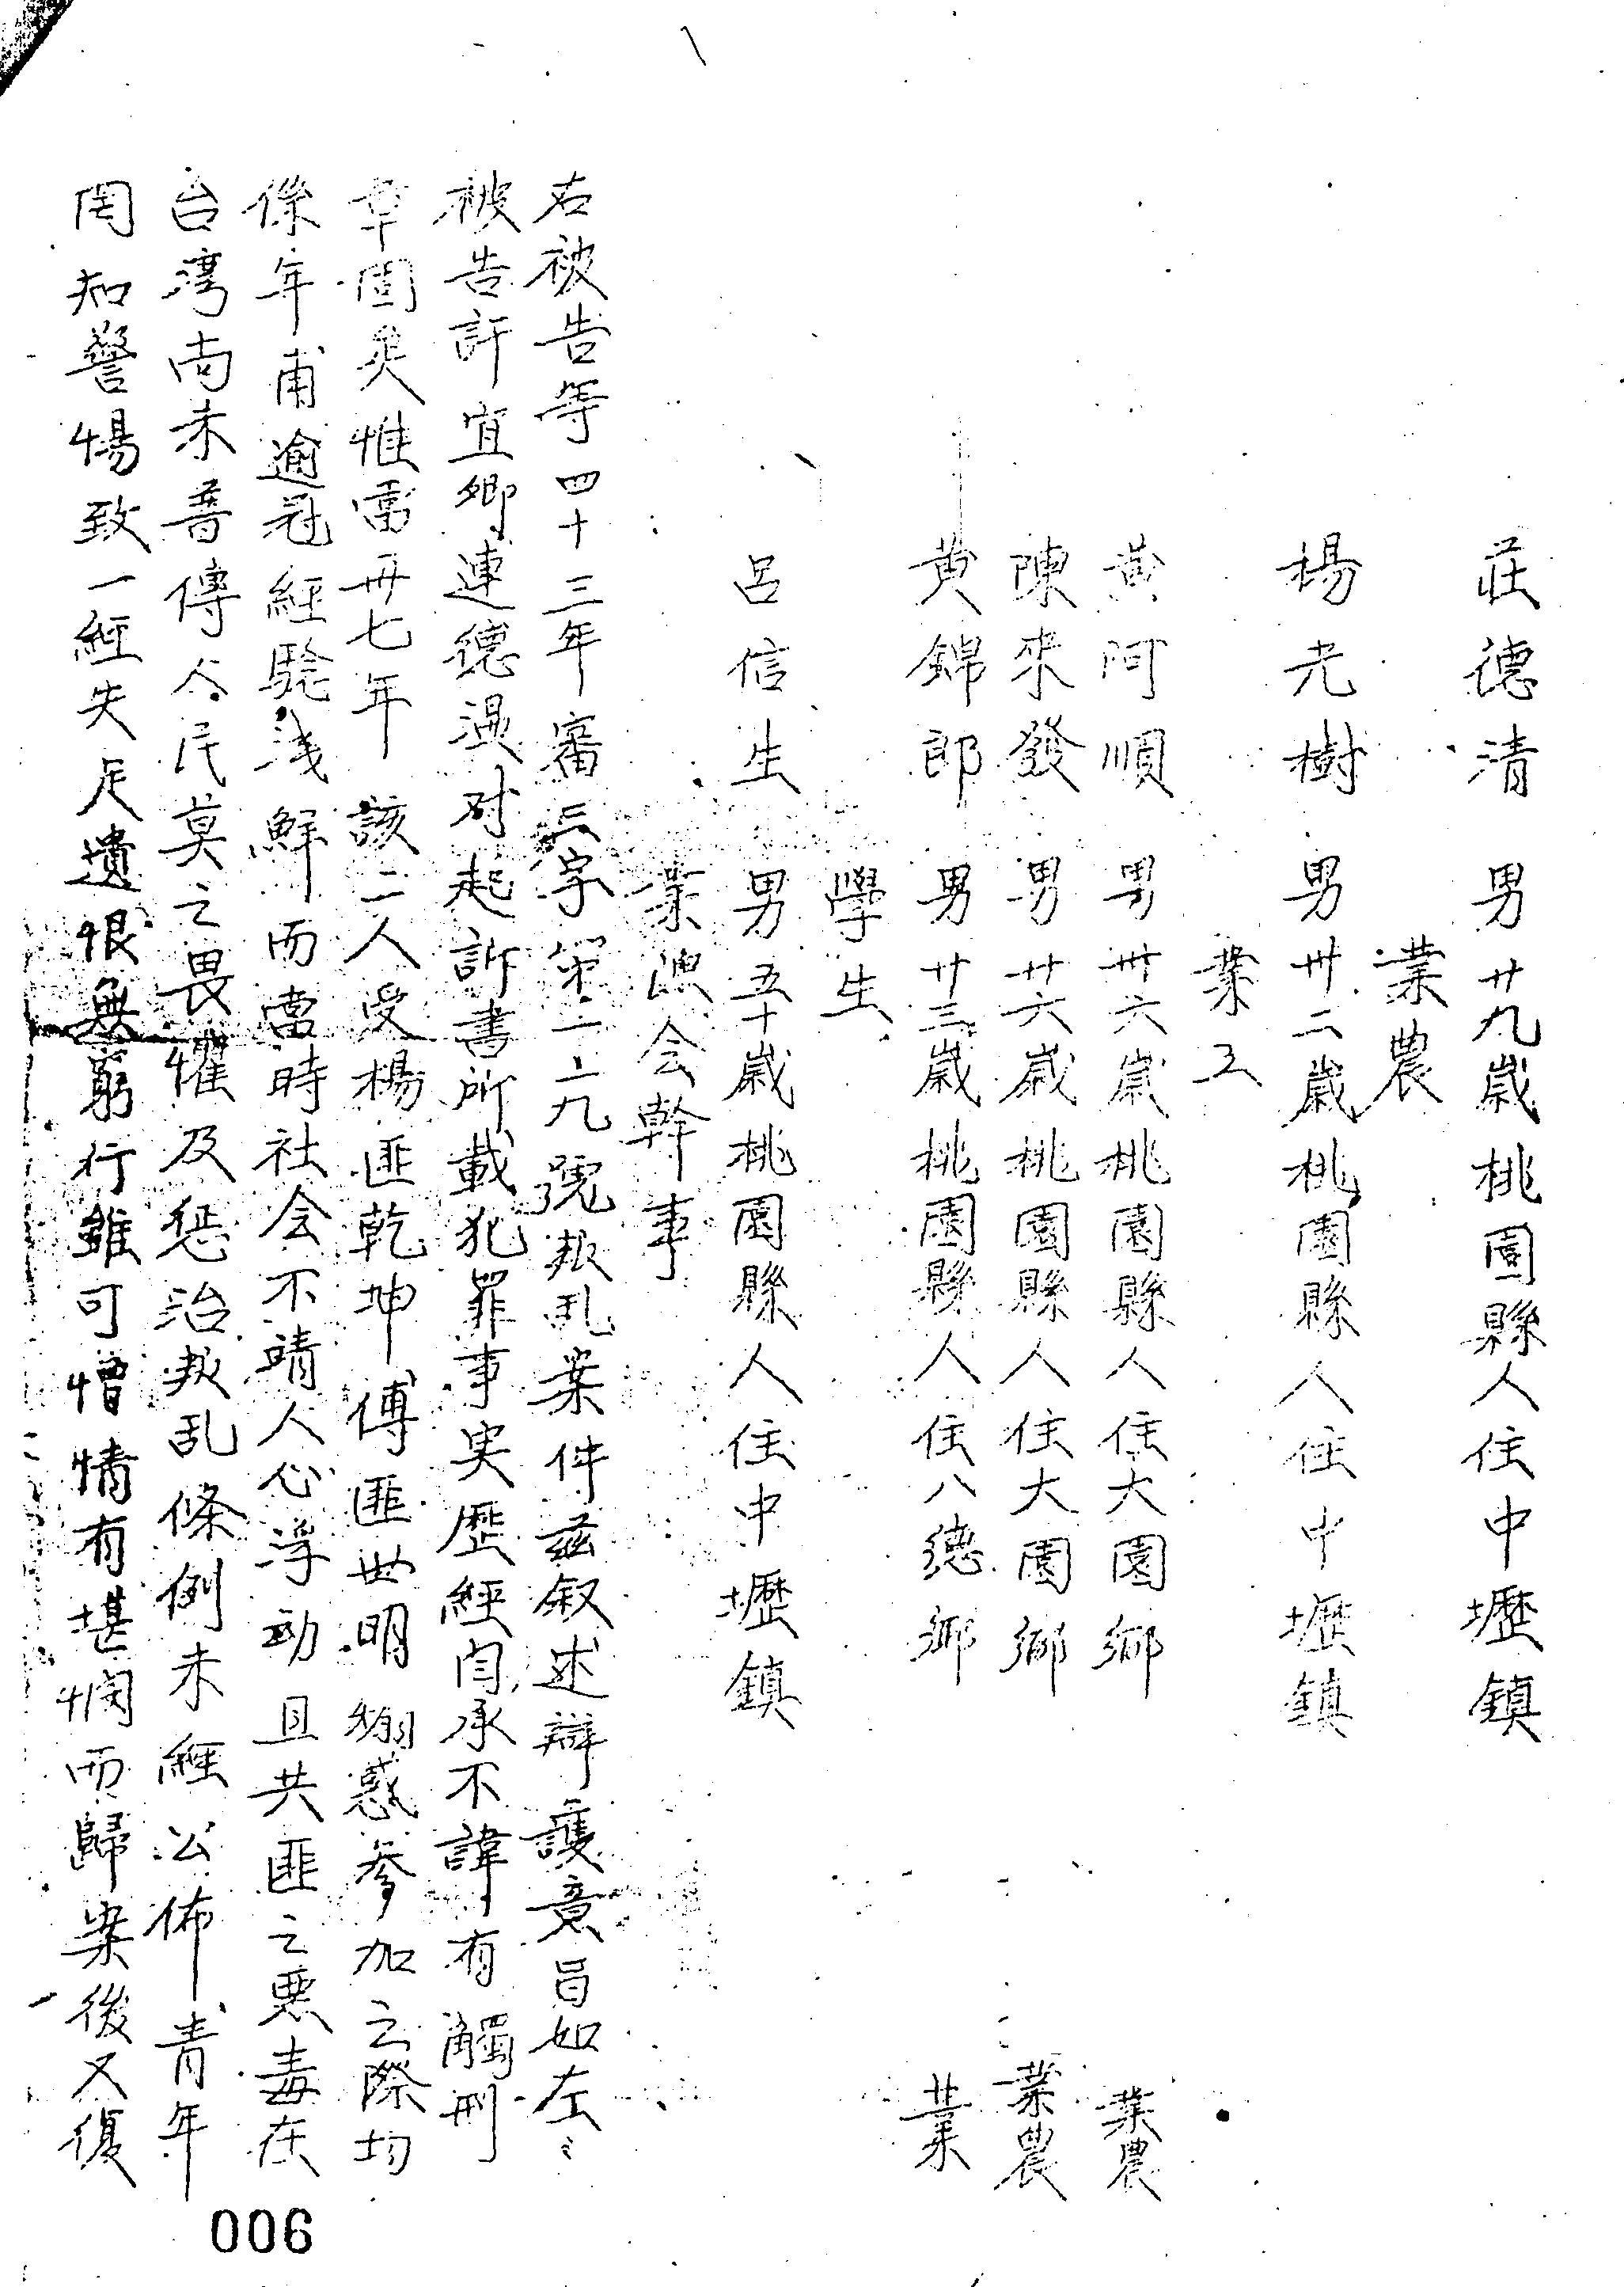 莊德清　男廿九歲桃園縣人住中壢鎮
業農
楊光樹　男卅二歲桃園縣人住中壢鎮
業工
黃阿順　男卅六歲桃園縣人住大園鄉　業農
陳來發　男廿六歲桃園縣人住大園鄉　業農
黃錦郎　男廿三歲桃園縣人住八德鄉　業
學生
呂信生　男五十歲桃園縣人住中壢鎮
業漁会幹事
右被告等四十三年審三字第一六九號叛乱案件茲叙述辯護意旨如左
被告許宜卿連德溫对起訴書所載犯罪事実歷經自承不諱有觸刑
章固矣惟當卅七年該二人受楊匪乾坤傅匪世明煽惑參加之際均
係年甫逾冠經驗淺鮮而當時社会不靖人心浮动且共匪之惡毒在
台湾尚未普傳人民莫之畏懼及惩治叛乱條例未經公佈青年
罔知警惕致一經失足遺恨無窮行雖可憎情有堪悯而歸案後又復
006